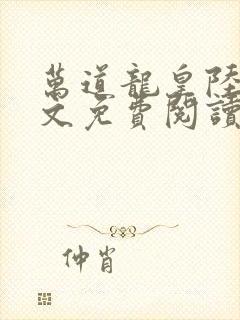 萬道龍皇陸
文免費閱讀
仲肖